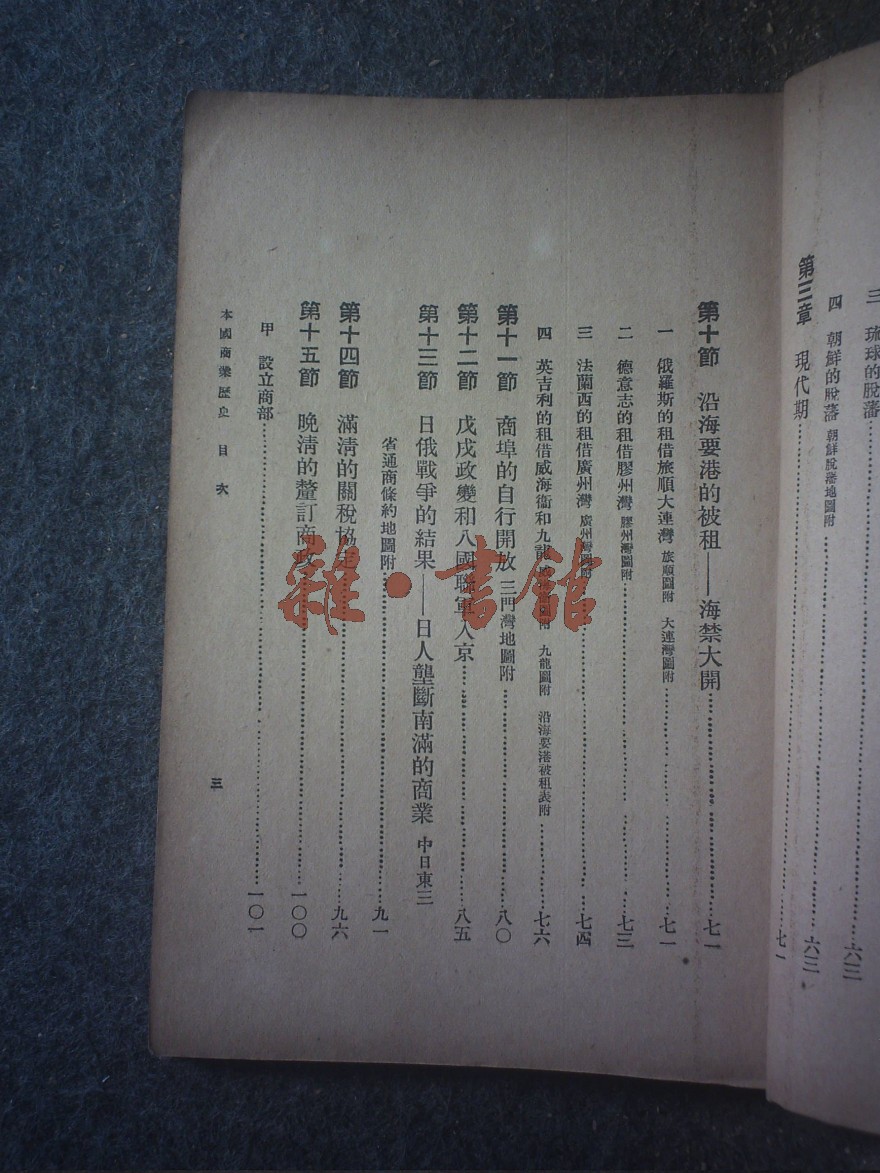 三　琉球的脫藩……六三
四　朝鮮的脫藩　朝鮮脫藩地圖附……六三
第三章　現代期……七一
第十節　沿海要港的被租——海禁大開……七一
一　俄羅斯的租借旅順大連灣　旅順圖附　大連灣圖附……七一
二　德意志的租借膠州灣　膠州灣圖附……七三
三　法蘭西的租借廣州灣　廣州灣圖附……七四
四　英吉利的租借威海衞和九龍　圖附　九龍圖附　沿海要港被租表附……七六
第十一節　商埠的自行開放　三門灣地圖附……八〇
第十二節　戊戌政變和八國聯軍入京……八五
第十三節　日俄戰爭的結果——日人壟斷南滿的商業　中日東三
省通商條約地圖附……九一
第十四節　滿清的關稅協定……九六
第十五節　晚清的釐訂商政……一〇〇
甲　設立商部……一〇一
本國商業歷史　目次
三
雜·書館